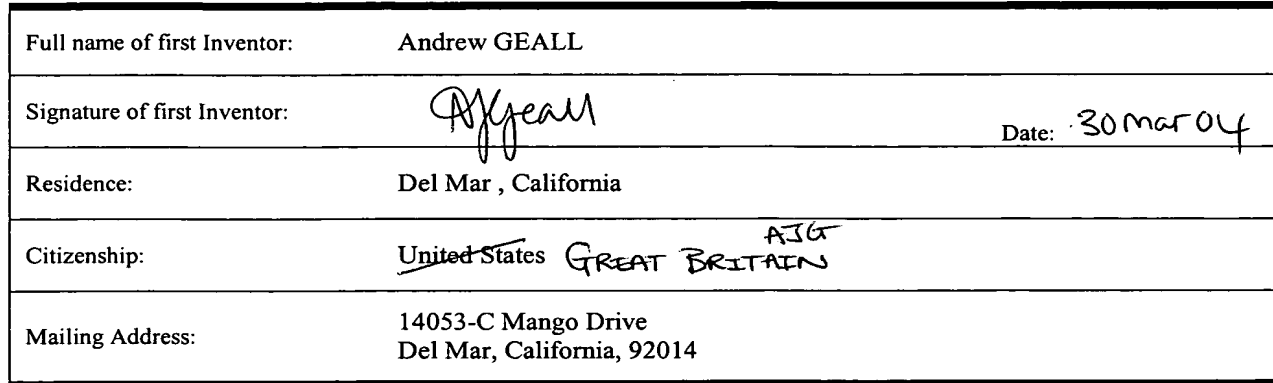 Full name of first Inventor: Andrew GEALL
Signature of first Inventor: AJGeall Date: 30 Mar 04
Residence: Del Mar , California
Citizenship: United States GREAT BRITAIN AJG
Mailing Address: 14053-C Mango Drive
Del Mar, California, 92014